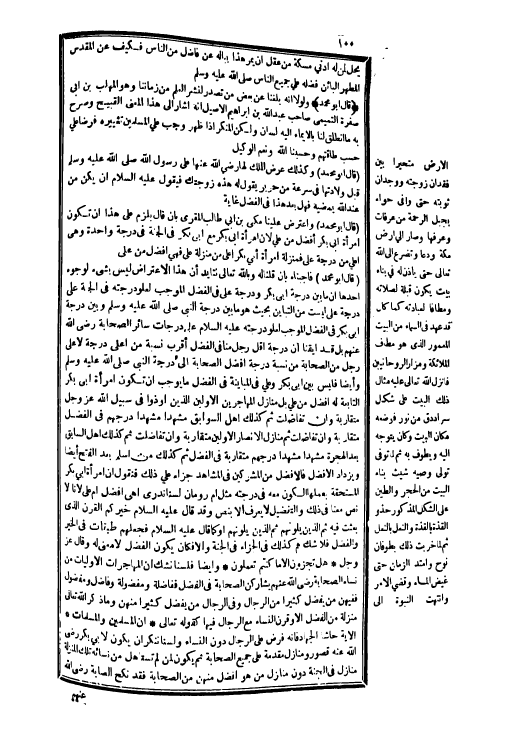 ١٠٠
يحل لمن له ادنى مسكة من عقل ان يمر هذا بباله عن فاضل من الناس فكيف عن المقدس
المطهر البائن فضله على جميع الناس صلى الله عليه وسلم
﴿قال ابو محمد﴾ ولولا انه بلغنا عن بعض من تصدر لنشر العلم من زماننا وهو المهلب بن ابي
صفرة التميمي صاحب عبدالله بن ابراهيم الاصيلي انه اشار الى هذا المعنى القبيح وصرح
به ما انطلق لنا بالايماء اليه لسان ولكن المنكر اذا ظهر وجب على المسلمين تغييره فرضا على
حسب طاقتهم وحسبنا الله ونعم الوكيل
(قال ابو محمد) وكذلك عرض الملك لها رضي الله عنها على رسول الله صلى الله عليه وسلم
قبل ولادتها في سرقة من حرير يقول له هذه زوجتك فيقول عليه السلام ان يكن من
عند الله يمضيه فهل بعد هذا في الفضل غاية
(قال ابو محمد) واعترض علينا مكى بن ابى طالب المقرى بان قال يلزم على هذا ان تكون
امرأة ابى بكر أفضل من على لان امرأة ابى بكر مع ابى بكر فى الجنة فى درجة واحدة وهى
اعلى من درجة على فمنزلة امرأة أبى بكر اعلى من منزلة على فهي افضل من على
(قال ابو محمد) فاجبناه بان قلنا له وبالله تعالى نتأيد أن هذا الاعتراض ليس بشيء لوجوه
احدها ان ما بين درجة ابى بكر ودرجة على فى الفضل الموجب لعلو درجته فى الجنة على
درجة على ليست من التباين بحيث هو ما بين درجة النبي صلى الله عليه وسلم وبين درجة
ابى بكر فى الفضل الموجب لعلو درجته عليه السلام على درجات سائر الصحابة رضى الله
عنهم بل قد ايقنا ان درجة اقل رجل منا فى الفضل أقرب نسبة من اعلى درجة لاعلى
رجل من الصحابة من نسبة درجة افضل الصحابة الى درجة النبى صلى الله عليه وسلم
وأيضا فليس بين ابى بكر وعلى فى المباينة فى الفضل ما يوجب ان تكون امرأة ابى بكر
التابعة له افضل من على بل منازل المهاجرين الاولين الذين اوذوا فى سبيل الله عز وجل
متقاربة وان تفاضلت ثم كذلك اهل السوابق مشهدا مشهدا درجهم فى الفضل
متقاربة وان تفاضلت ثم منازل الانصار الاولين متقاربة وان تفاضلت ثم كذلك اهل السابق
بعد الهجرة مشهدا مشهدا درجهم متقاربة فى الفضل كذلك من اسلم بعد الفتح أيضا
ويزداد الافضل فالافضل من المشركين فى المشاهد جزاء على ذلك فنقول ان امرأة ابى بكر
المستحقة بعملها الكون معه فى درجته مثل ام رومان لسنا ندرى اهى افضل ام على لانا لا
نص معنا فى ذلك والتفضيل لا يعرف الا بنص وقد قال عليه السلام خيركم القرن الذى
بعثت فيه ثم الذين يلونهم ثم الذين يلونهم او كما قال عليه السلام فجعلهم طبقات فى الخير
والفضل فلا شك هم كذلك فى الجزاء فى الجنة والا فكان يكون الفضل لا معنى له وقال عز
وجل * هل تجزون الا ما كنتم تعملون * وايضا فلسنا نشك ان المهاجرات الاوليات من
نساء الصحابة رضى الله عنهم يشاركن الصحابة فى الفضل ففاضلة ومفضولة وفاضل ومفضول
ففيهن من يفضل كثيرا من الرجال وفى الرجال من يفضل كثيرا منهن وما ذكر الله تعالى
منزلة من الفضل الا وقرن النساء مع الرجال فيها كقوله تعالى * ان المسلمين والمسلمات *
الآية حاشا الجهاد فانه فرض على الرجال دون النساء ولسنا ننكر ان يكون لابى بكر رضى
الله عنه قصور ومنازل مقدمة على جميع الصحابة ثم يكون لمن لم تستأهل من نسائه تلك المنزلة
منازل فى الجنة دون منازل من هو افضل منهن من الصحابة فقد نكح الصحابة رضى الله
عنهم
الارض متحيرا بين
فقدان زوجته ووجدان
توبته حتى وافى حواء
بجبل الرحمة من عرفات
وعرفها وصار الى ارض
مكة ودعا وتضرع الى الله
تعالى حتى يأذن له فى بناء
بيت يكون قبلة لصلاته
ومطافا لعبادته كما كان
قد عهد فى السماء من البيت
المعمور الذى هو مطاف
الملائكة ومزار الروحانيين
فانزل الله تعالى عليه مثال
ذلك البيت على شكل
سرادق من نور فوضعه
مكان البيت وكان يتوجه
اليه ويطوف به ثم لما توفى
تولى وصيه شيث بناء
البيت من الحجر والطين
على الشكل المذكور حذو
القذة بالقذة والنعل بالنعل
ثم لما خربت ذلك بطوفان
نوح وامتد الزمان حتى
غيض الماء وقضى الامر
وانتهت النبوة الى